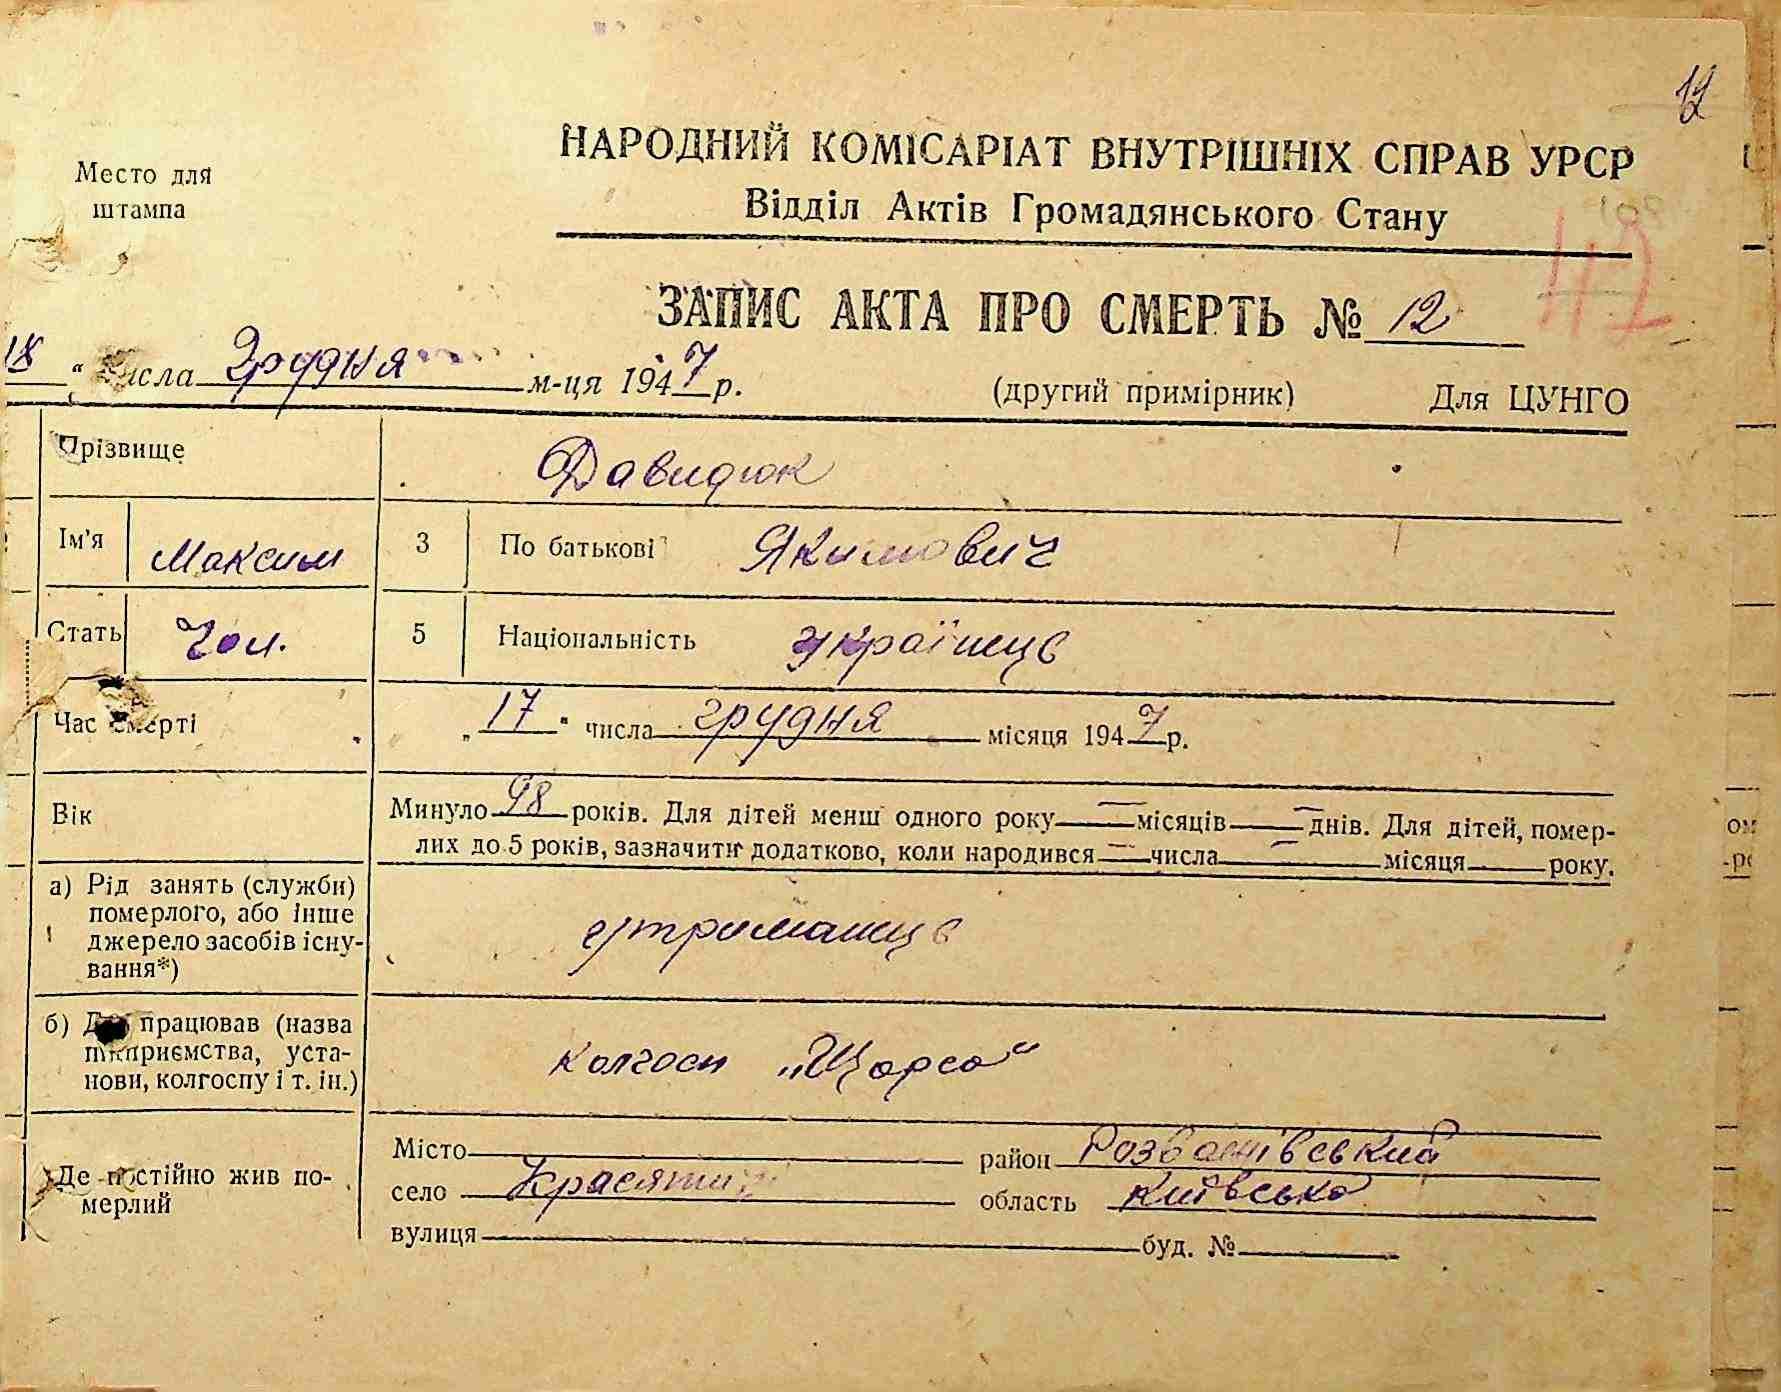 12
Место для
штампа
НАРОДНИЙ КОМІСАРІАТ ВНУТРІШНІХ СПРАВ УРСР
Відділ Актів Громадянського Стану
47
ЗАПИС АКТА ПРО СМЕРТЬ № 12
18 " числа Грудня м-ця 1947 р.
(другий примірник) Для ЦУНГО
Прізвище Давидюк
Ім'я Максим 3 По батькові Якимович
Стать Чол. 5 Національність українець
Час смерті „ 17 " числа грудня місяця 1947 р.
Вік Минуло 98 років. Для дітей менш одного року — місяців — днів. Для дітей, помер-
лих до 5 років, зазначити додатково, коли народився — числа — місяця року.
а) Рід занять (служби)
померлого, або інше
джерело засобів існу-
вання*)
утриманець
б) Де працював (назва
підприємства, уста-
нови, колгоспу і т. ін.)
колгосп „Щорса"
Де постійно жив по-
мерлий
Місто район Розважівський
село Красятичі область Київська
вулиця буд. №